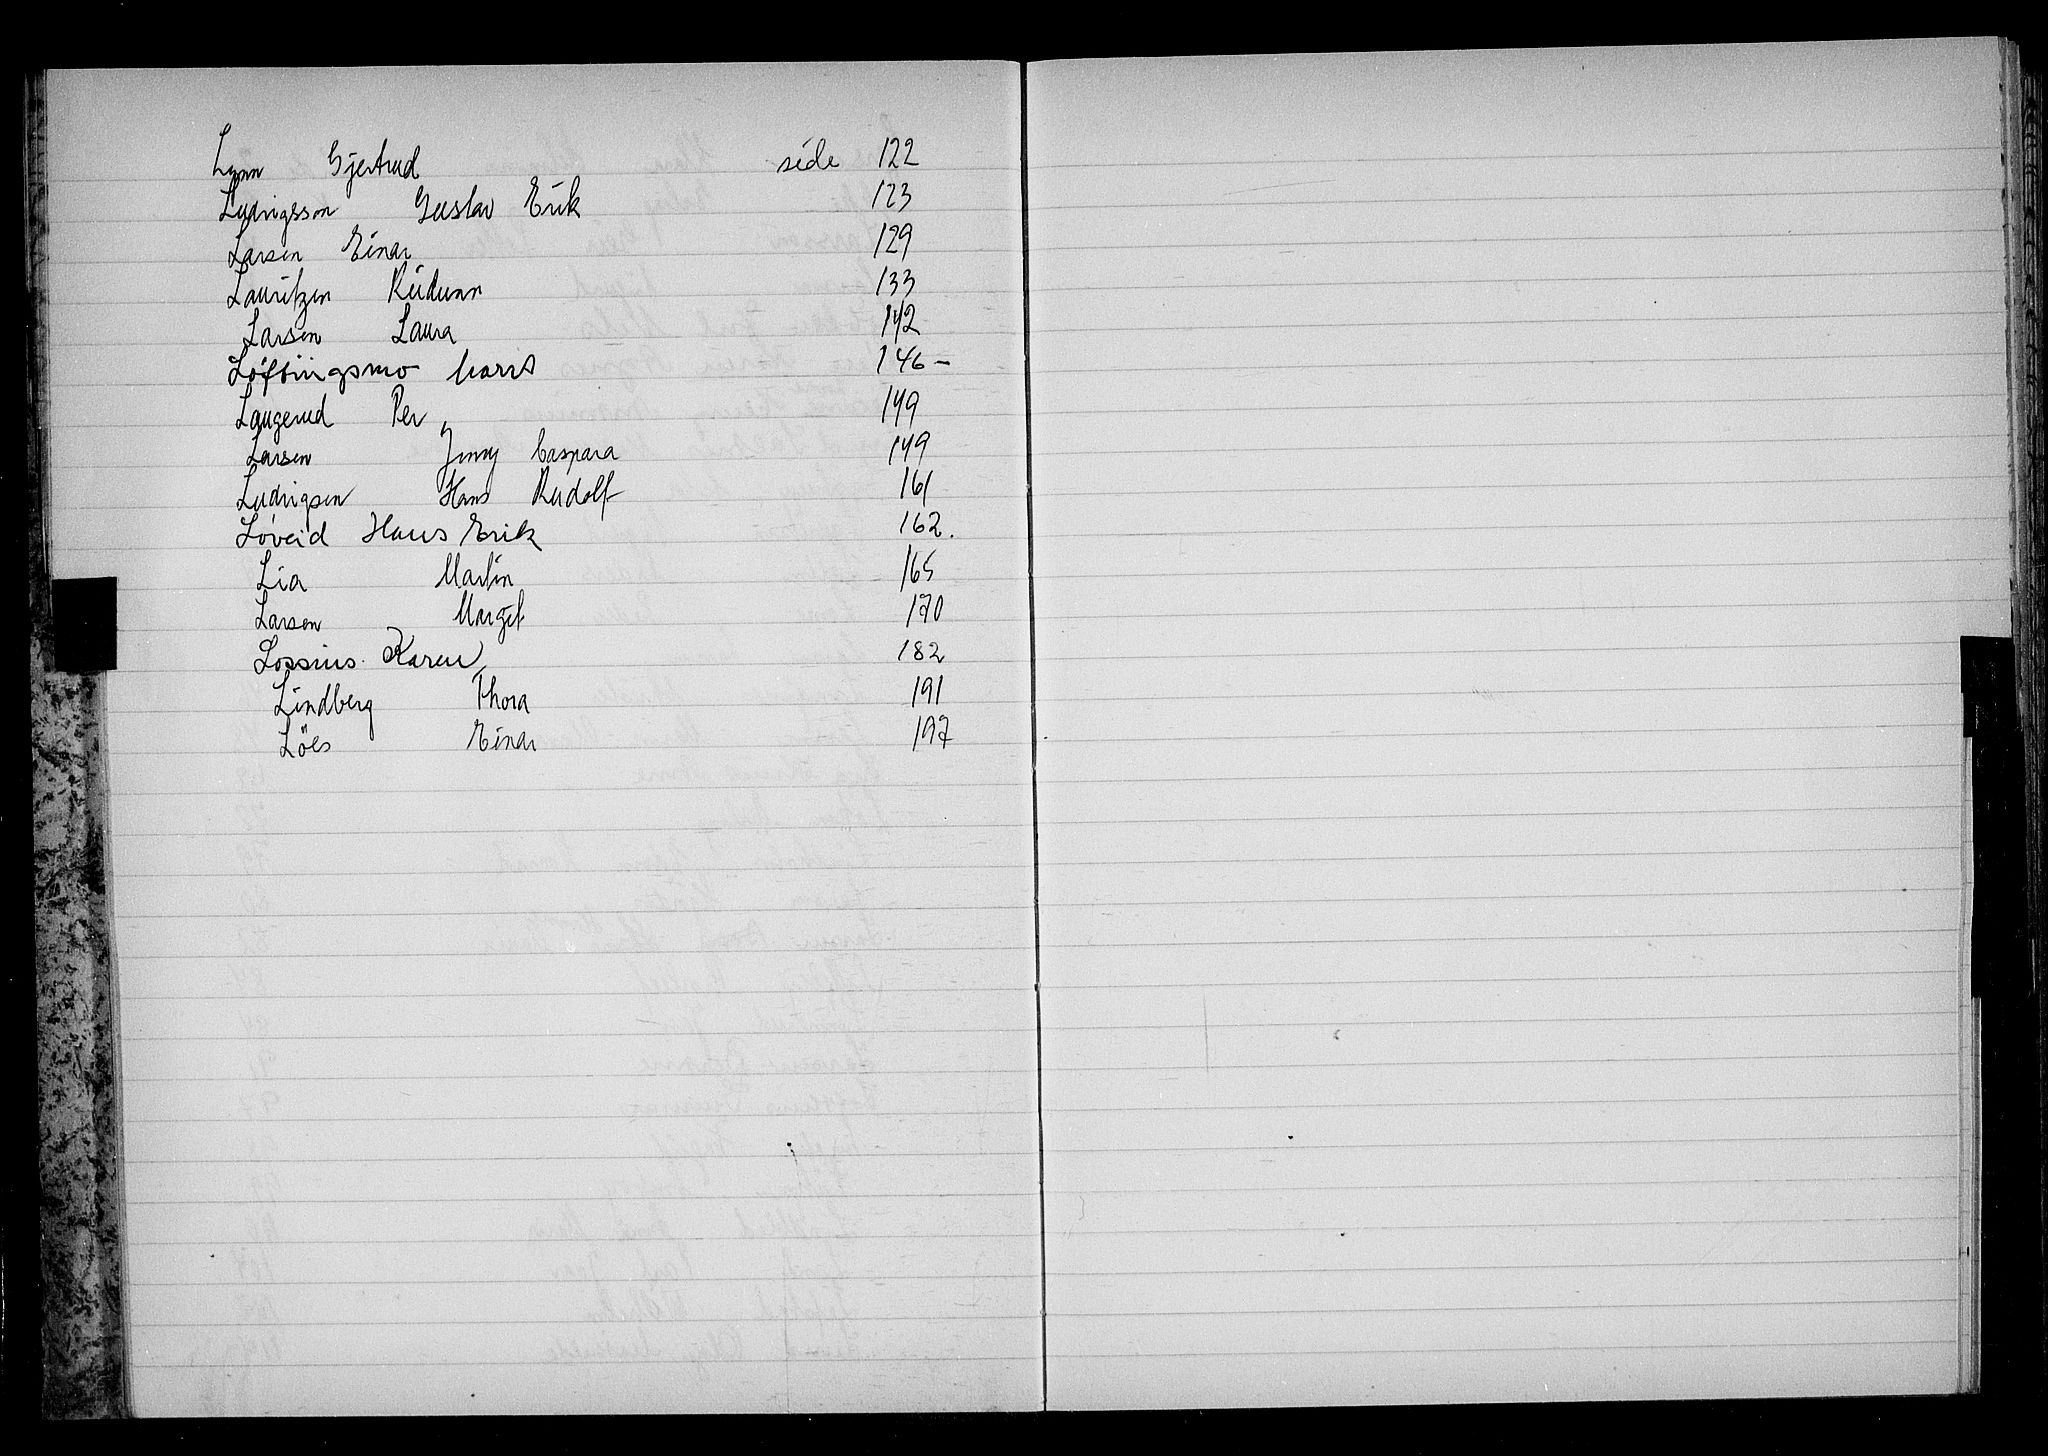 Lynn Gjertrud side 122
Ludvigsson Gustav Erik 123
Larsen Einar 129
Lauritzen Reidunn 133
Larsen Laura 142
Løftingsmo 146 -
Laugerud Per 149
Larsen Jenny Caspara 149
Ludvigsen Hans Rudolf 161
Løveid Hans Erik 162.
Lia Martin 165
Larsen Margit 170
Lossius Karen 182
Lindberg Thora 191
Löes Einar 197